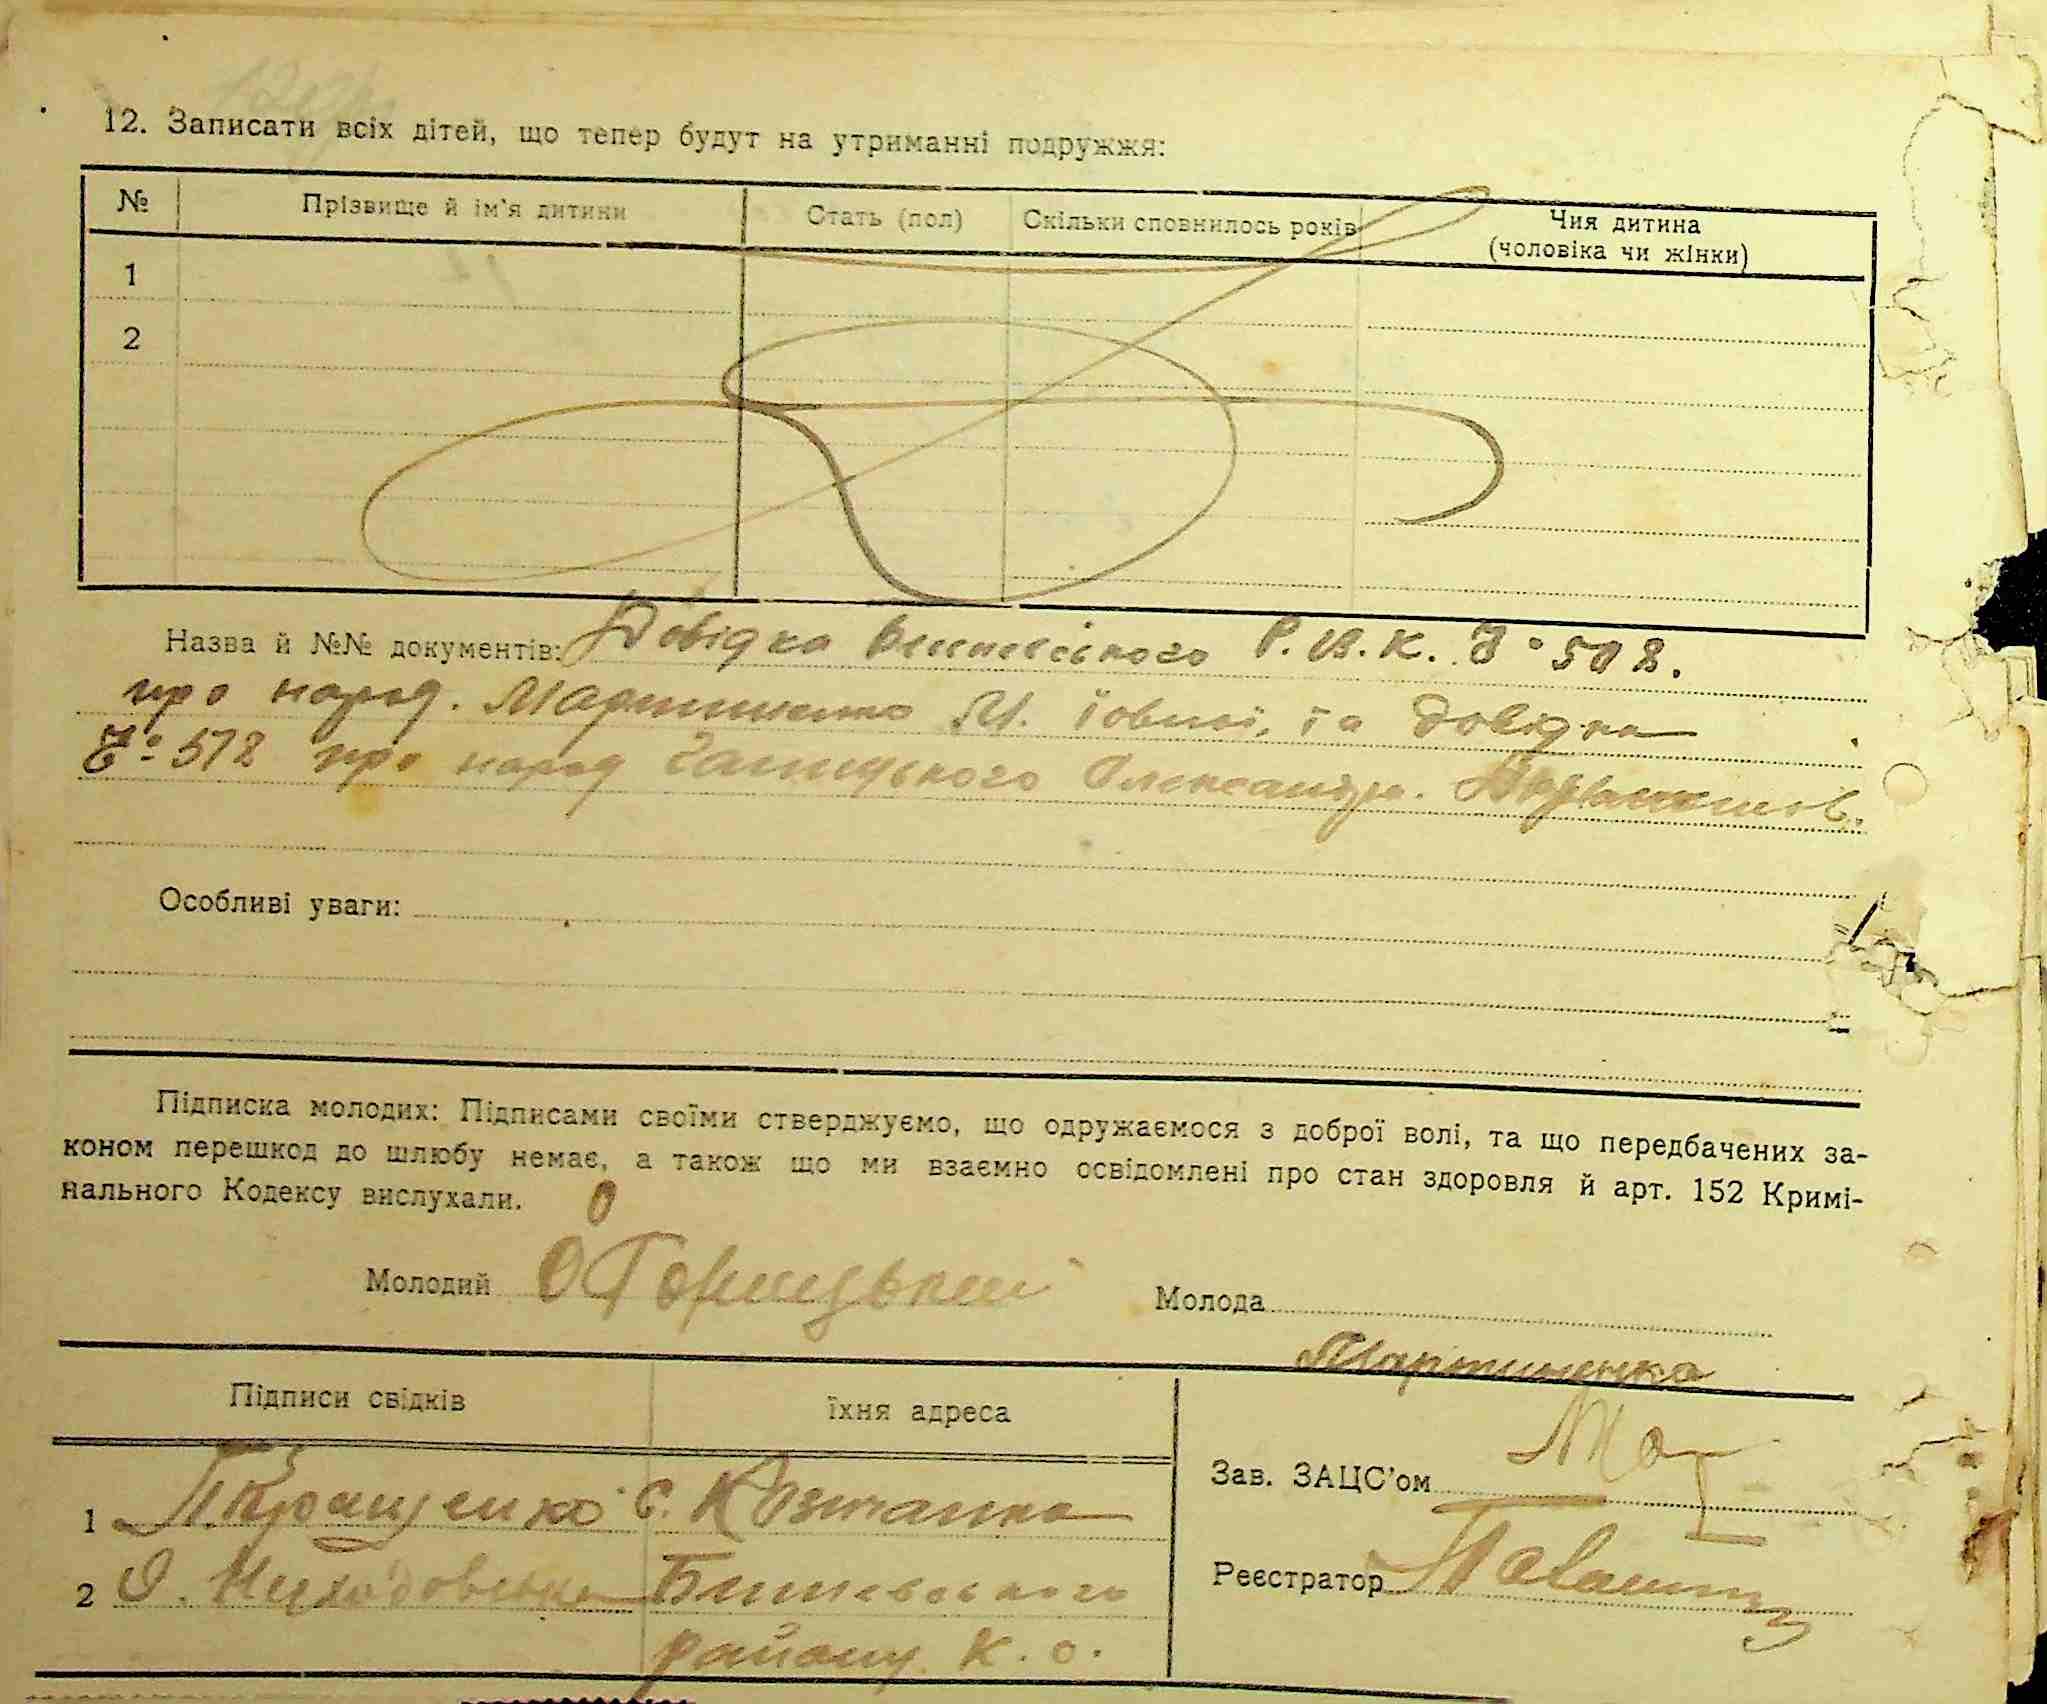 12. Записати всіх дітей, що тепер будут на утриманні подружжя:
№ Прізвище й ім'я дитини Стать (пол) Скільки сповнилось років Чия дитина
(чоловіка чи жінки)
1
2
Назва й №№ документів: Довідка Р.В.К. № 508.
про народ. Мартиненко М. та довідка
№ 572 про народ Олександр.
Особливі уваги:
Підписка молодих: Підписами своїми стверджуємо, що одружаємося з доброї волі, та що передбачених за-
коном перешкод до шлюбу немає, а також що ми взаємно освідомлені про стан здоровля й арт. 152 Кримі-
нального Кодексу вислухали.
Молодий О Горицький Молода
Мартиненка
Підписи свідків їхня адреса
Зав. ЗАЦС'ом
1 с.
2 Бишевського
Реєстратор
району К. о.